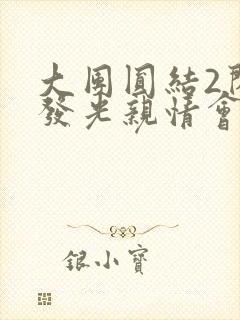 大團圓結2
發光親情會
銀小寶